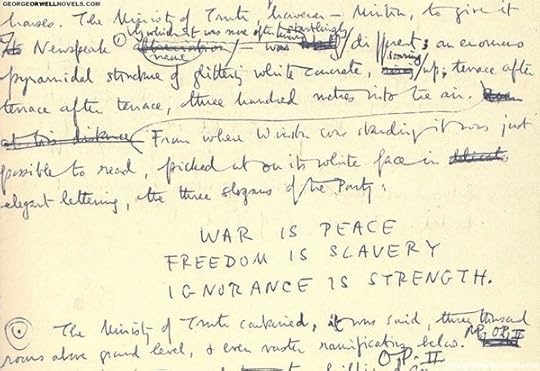 GEORGEORWELLNOVELS.COM
houses. The Ministry of Truth, however – Minitrue, to give it
its Newspeak name – was startlingly different; an enormous
pyramidal structure of glittering white concrete, soaring up, terrace after
terrace after terrace, three hundred metres into the air.
at this distance From where Winston was standing it was just
possible to read, picked out on its white face in
elegant lettering, the three slogans of the Party:
WAR IS PEACE
FREEDOM IS SLAVERY
IGNORANCE IS STRENGTH.
The Ministry of Truth contained, it was said, three thousand
rooms above ground level, & even vaster ramifications below.